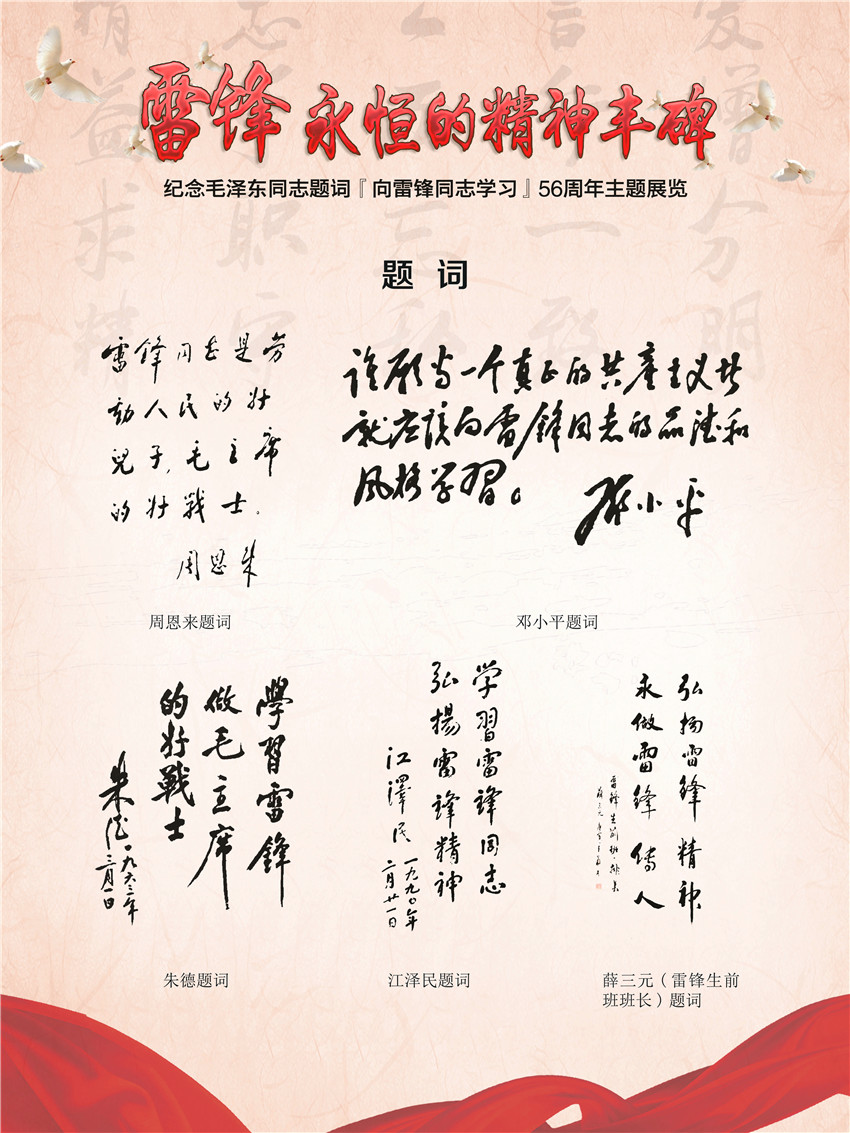 雷锋 永恒的精神丰碑
纪念毛泽东同志题词『向雷锋同志学习』56周年主题展览
题 词
雷锋同志是劳
动人民的好
兒子,毛主席
的好战士.
周恩来
周恩来题词
谁愿当一个真正的共產主义者
就应该向雷锋同志的品德和
风格学習。
邓小平
邓小平题词
學習雷锋
做毛主席
的好戰士
朱德
一九六三年
二月一日
朱德题词
学習雷锋同志
弘揚雷锋精神
江澤民
一九九〇年
二月廿一日
江泽民题词
弘扬雷锋精神
永做雷锋传人
雷锋生前班班长
薛三元
薛三元（雷锋生前
班班长）题词